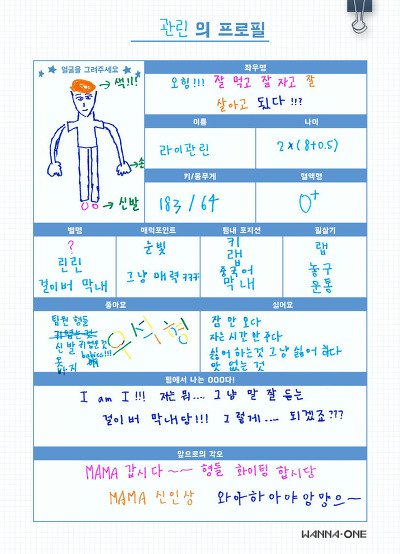 관린의 프로필
얼굴을 그려주세요
썩!!?
손
신발
좌우명
오힝!!! 잘 먹고 잘 자고 잘
살아고 됬다 !!?
이름
나이
라이관린
2×(8+0.5)
키/몸무게
혈액형
183 / 64
O+
별명
매력포인트
팀내 포지션
필살기
?
린린
걸어버 막내
눈빛
그냥 매력 ㅋㅋㅋ
키
랩
중국어
막내
랩
농구
문통
좋아요
싫어요
팀원 형들
신발 귀엽은것
babies!!!
옷
바지
우석형
잠 안 오다
자는 시간 한 주다
싫어 하는것 그냥 싫어 하다
맛 없는 것
팀에서 나는 OOO다!
I am I !!! 저는 뭐.... 그냥 말 잘 듣는
걸이버 막내당!!! 그렇게.... 되겠죠???
앞으로의 각오
MAMA 갑시다~~ 형들 화이팅 합시당
MAMA 신인상 와아하아야앙망으~
WANNA·ONE